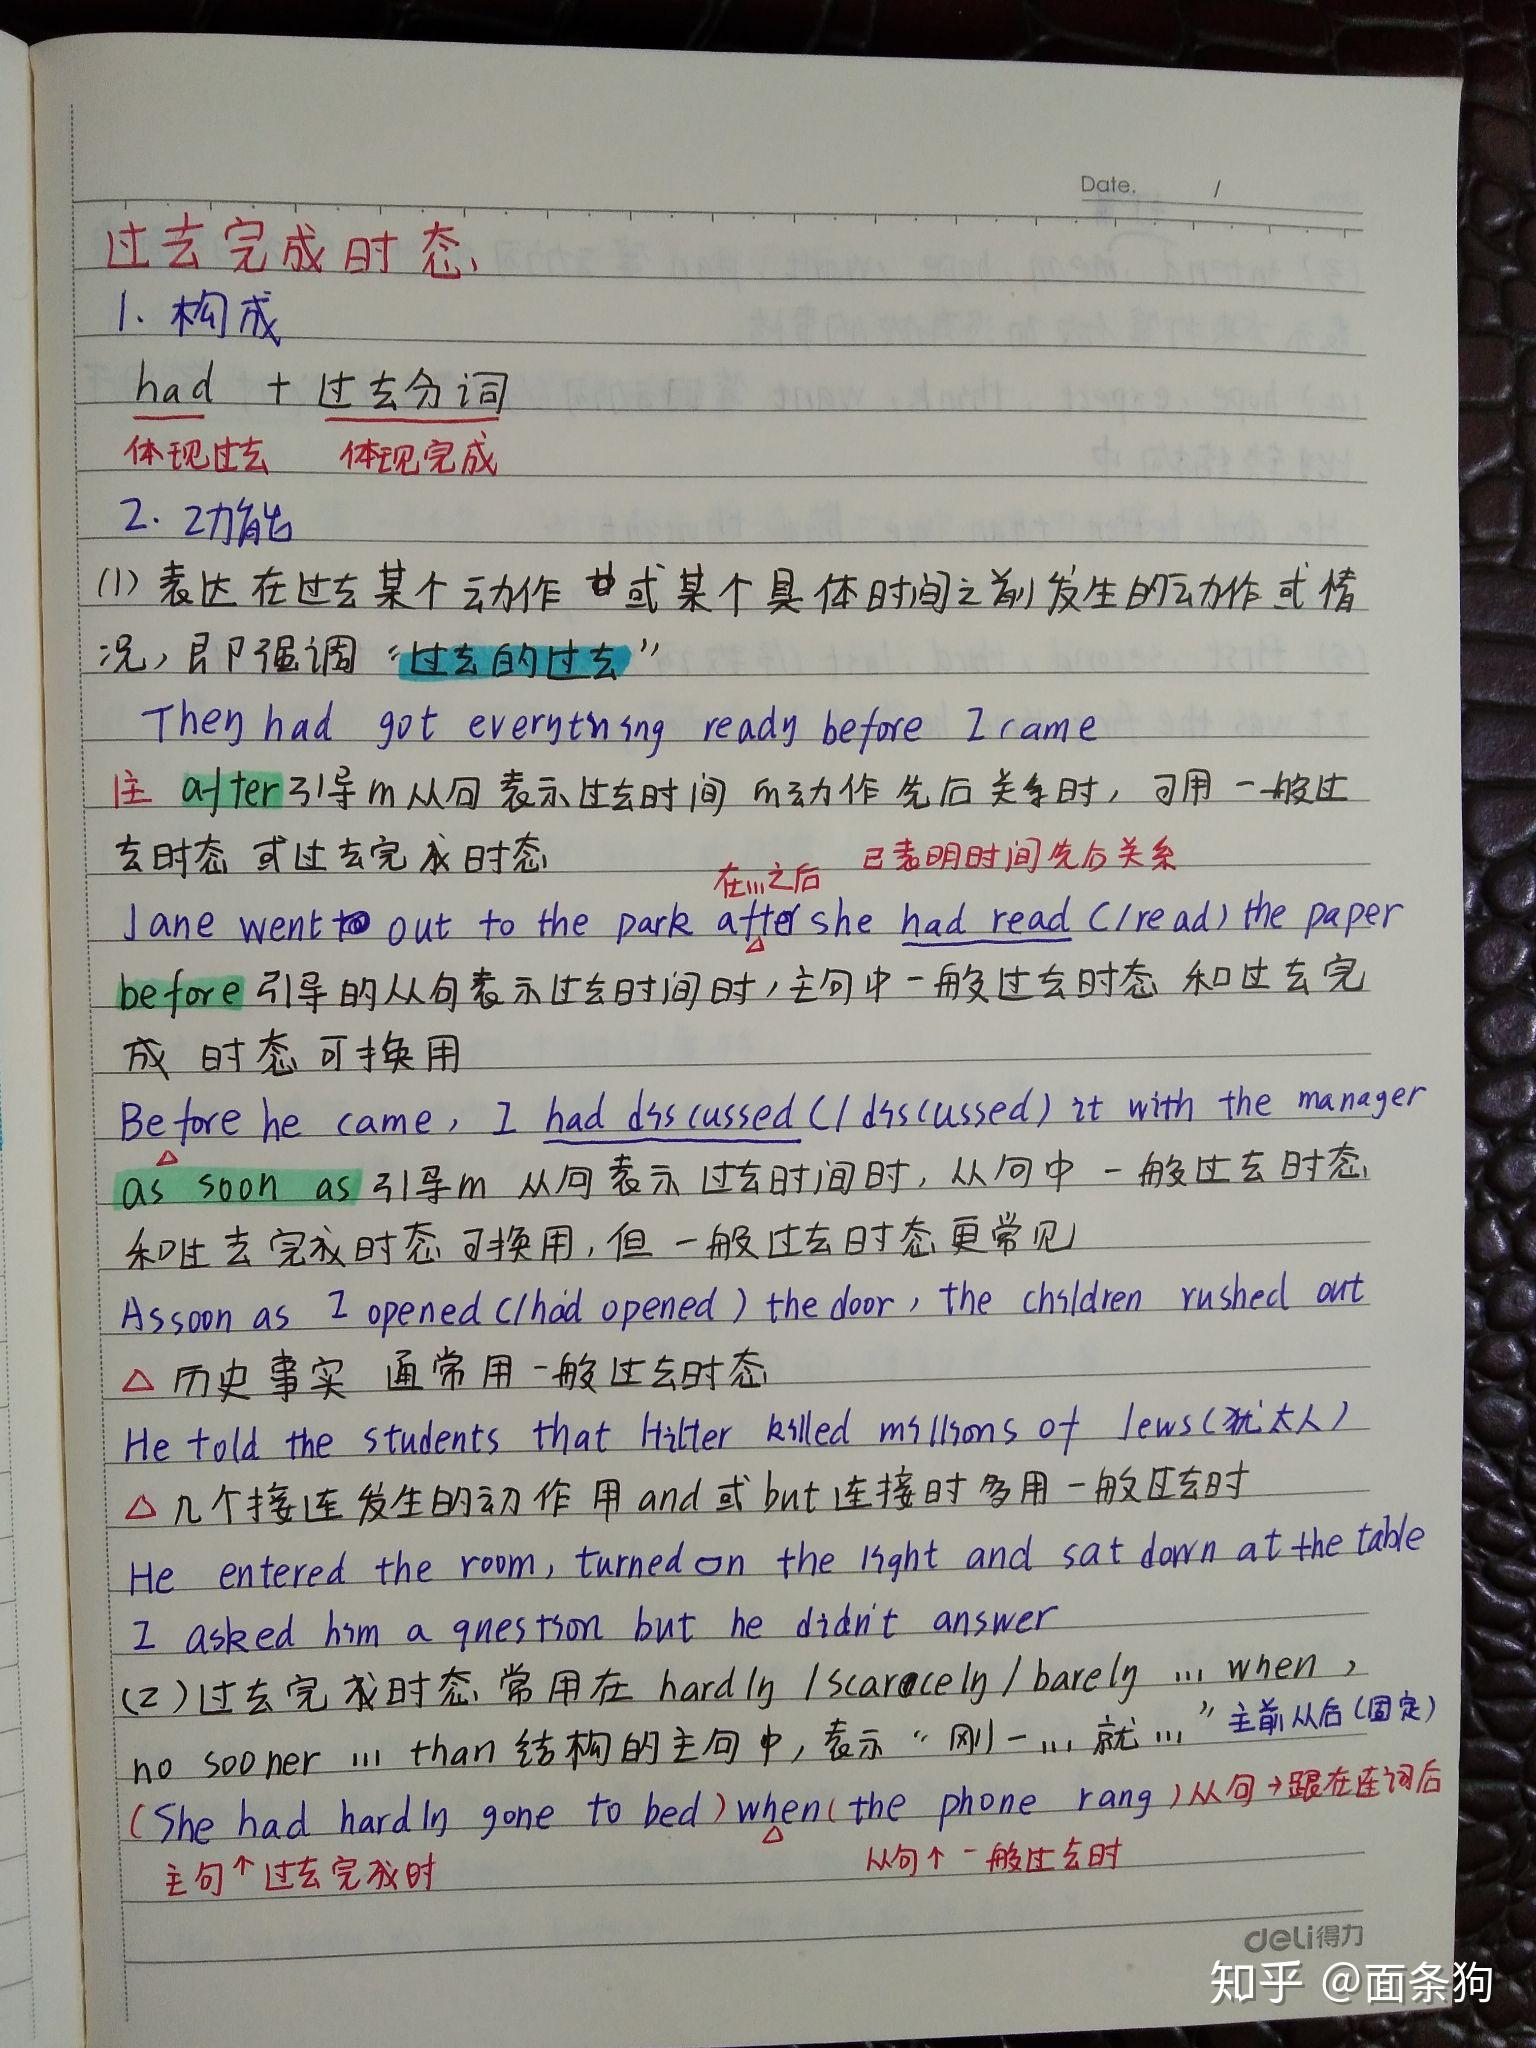 Date. /
过去完成时态
1. 构成
had + 过去分词
体现过去 体现完成
2. 功能
(1) 表达在过去某个动作或某个具体时间之前发生的动作或情
况,即强调“过去的过去”
They had got everything ready before I came
注 after引导m从句表示过去时间m动作先后关系时,可用一般过
去时态或过去完成时态
在...之后 已表明时间先后关系
Jane went out to the park after she had read (/read) the paper
before引导的从句表示过去时间时,主句中一般过去时态和过去完
成时态可换用
Before he came, I had discussed (/discussed) it with the manager
as soon as引导m从句表示过去时间时,从句中一般过去时态
和过去完成时态可换用,但一般过去时态更常见
As soon as I opened (/had opened) the door, the children rushed out
△ 历史事实通常用一般过去时态
He told the students that Hilter killed millions of Jews (犹太人)
△ 几个接连发生的动作用and或but连接时多用一般过去时
He entered the room, turned on the light and sat down at the table
I asked him a question but he didn't answer
(2) 过去完成时态常用在 hardly / scarcely / barely ... when,
no sooner ... than 结构的主句中,表示“刚一...就...” 主前从后(固定)
(She had hardly gone to bed) when (the phone rang) 从句→跟在连词后
主句↑过去完成时 从句↑一般过去时
deli得力
知乎 @面条狗